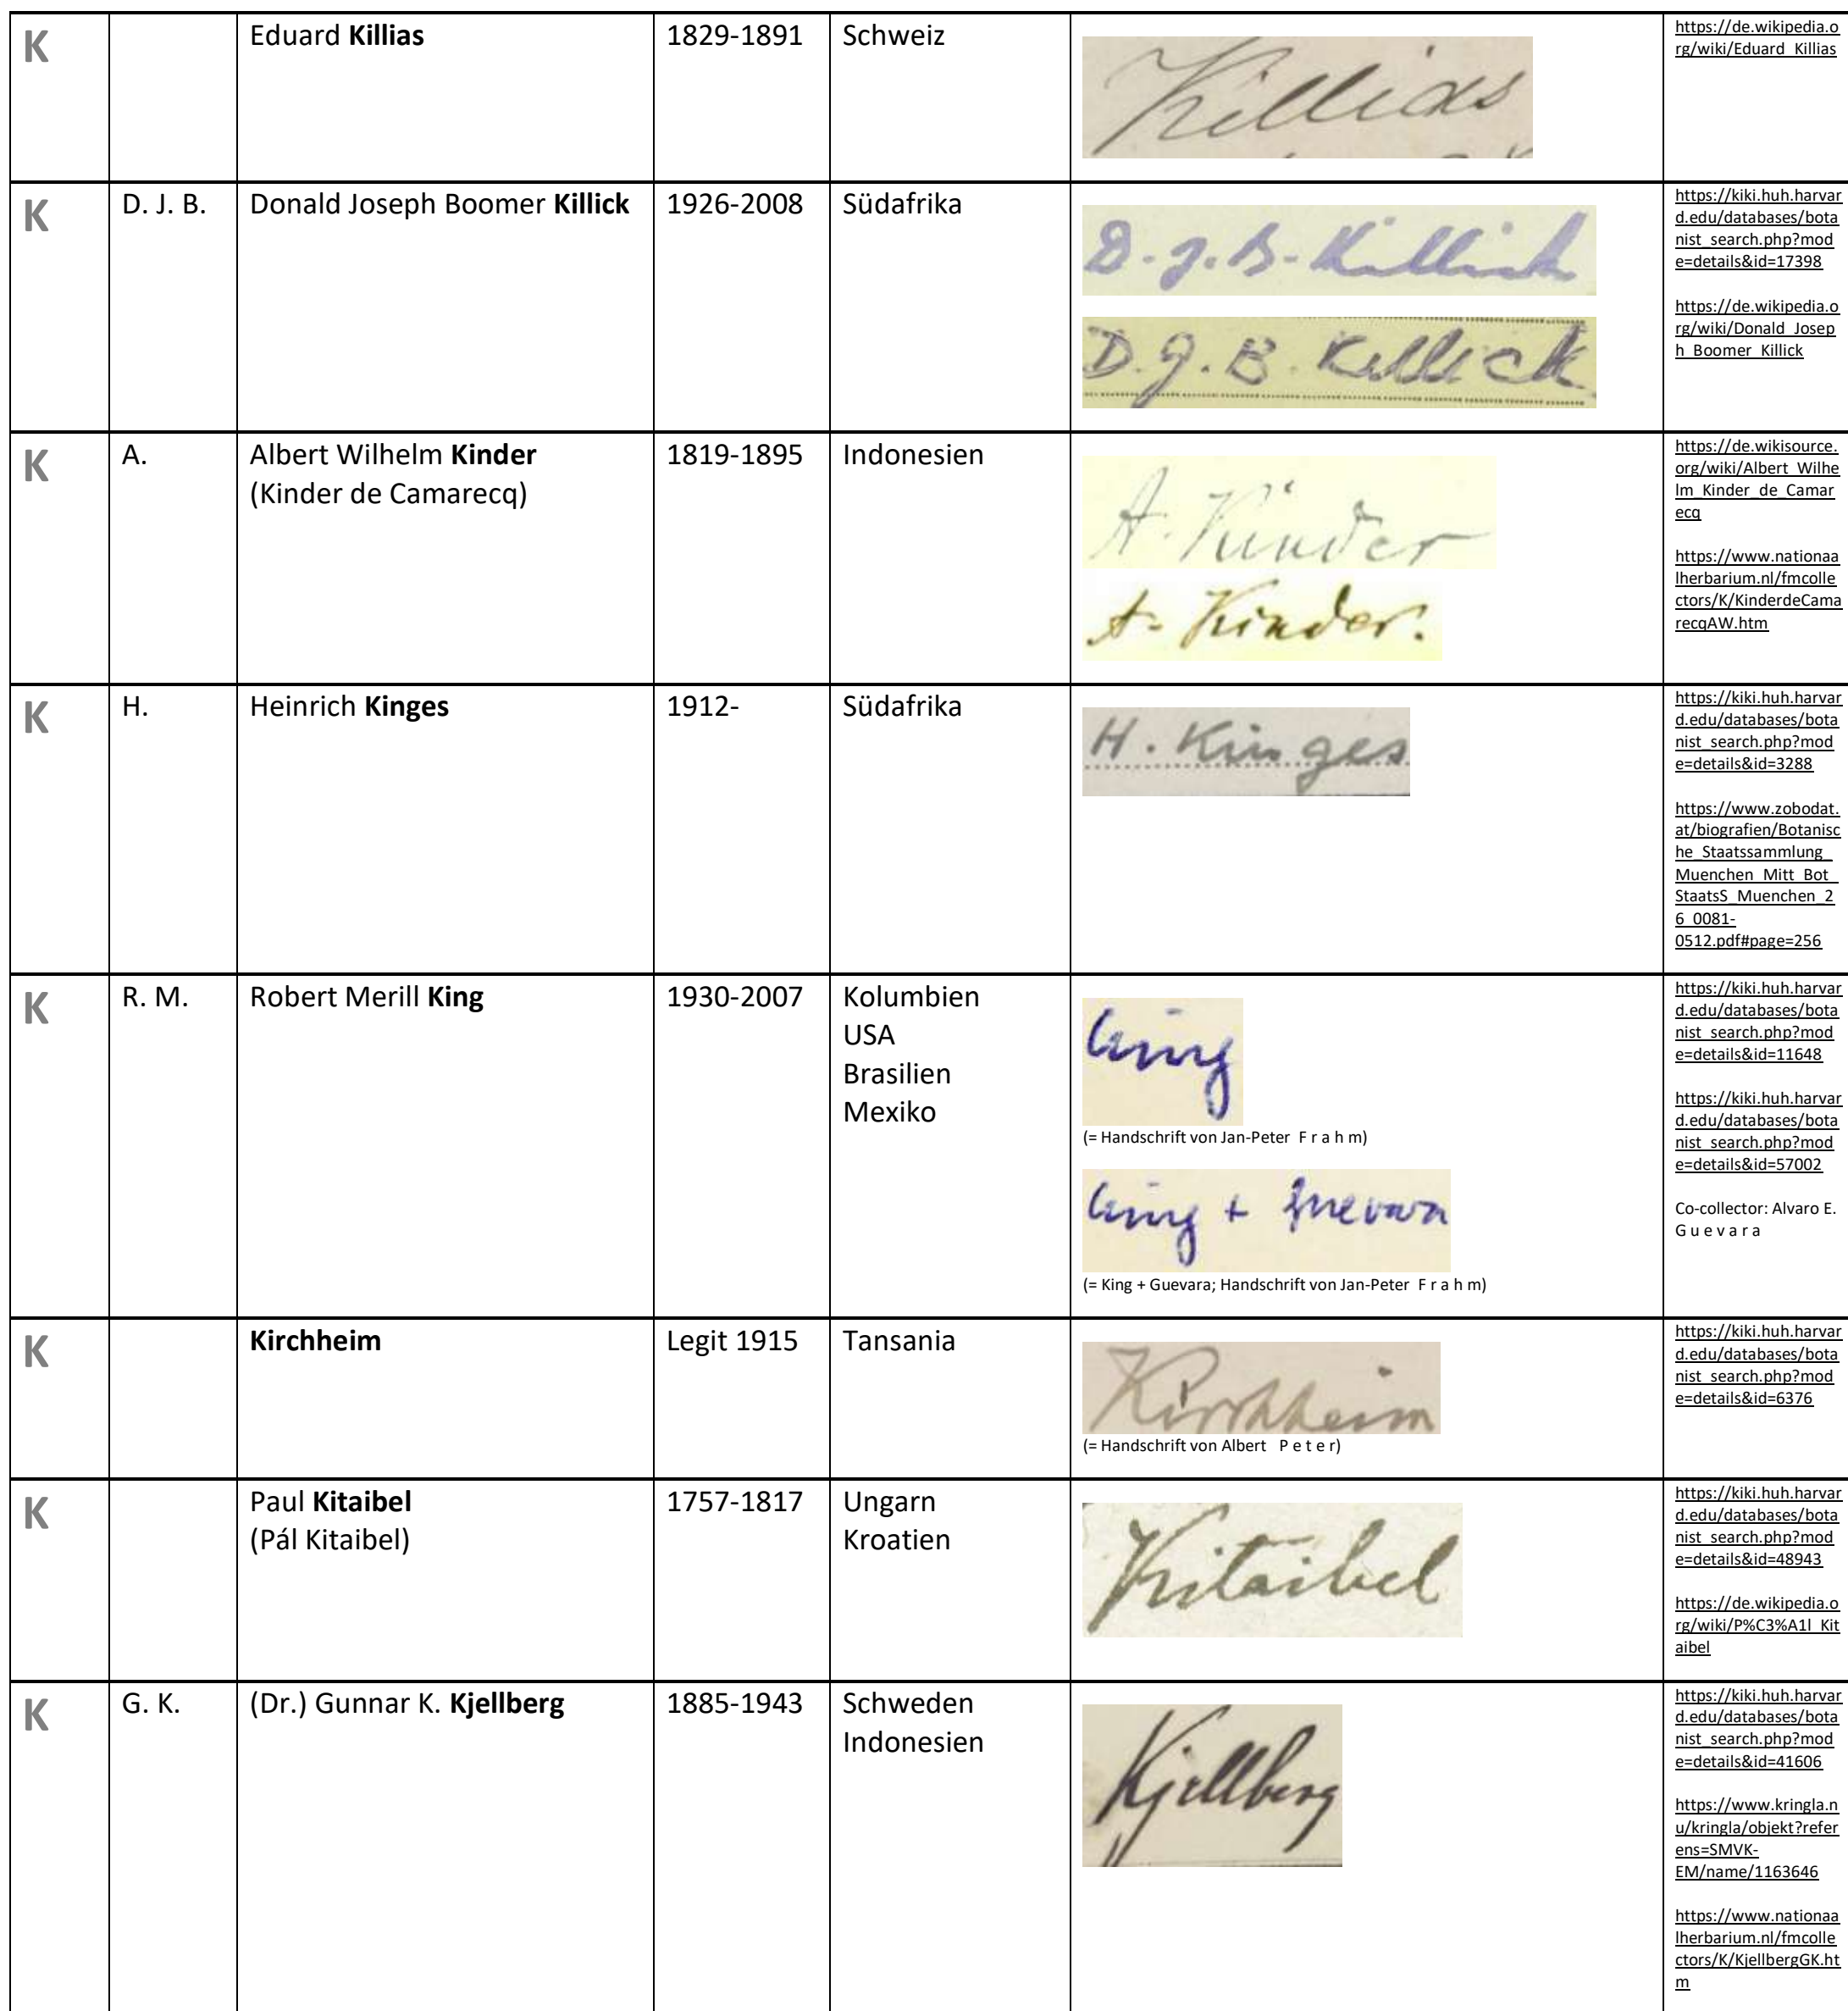 K
Eduard Killias
1829-1891
Schweiz
Killias
https://de.wikipedia.o
rg/wiki/Eduard_Killias
K
D. J. B.
Donald Joseph Boomer Killick
1926-2008
Südafrika
D. J. B. Killick
D. J. B. Killick
https://kiki.huh.harvar
d.edu/databases/bota
nist_search.php?mod
e=details&id=17398
https://de.wikipedia.o
rg/wiki/Donald_Josep
h_Boomer_Killick
K
A.
Albert Wilhelm Kinder
(Kinder de Camarecq)
1819-1895
Indonesien
A. Kinder
A. Kinder.
https://de.wikisource.
org/wiki/Albert_Wilhe
lm_Kinder_de_Camar
ecq
https://www.nationaa
lherbarium.nl/fmcolle
ctors/K/KinderdeCama
recqAW.htm
K
H.
Heinrich Kinges
1912-
Südafrika
H. Kinges
https://kiki.huh.harvar
d.edu/databases/bota
nist_search.php?mod
e=details&id=3288
https://www.zobodat.
at/biografien/Botanisc
he_Staatssammlung_
Muenchen_Mitt_Bot_
StaatsS_Muenchen_2
6_0081-
0512.pdf#page=256
K
R. M.
Robert Merill King
1930-2007
Kolumbien
USA
Brasilien
Mexiko
King
(= Handschrift von Jan-Peter F r a h m)
King + Guevara
(= King + Guevara; Handschrift von Jan-Peter F r a h m)
https://kiki.huh.harvar
d.edu/databases/bota
nist_search.php?mod
e=details&id=11648
https://kiki.huh.harvar
d.edu/databases/bota
nist_search.php?mod
e=details&id=57002
Co-collector: Alvaro E.
G u e v a r a
K
Kirchheim
Legit 1915
Tansania
Kirchheim
(= Handschrift von Albert P e t e r)
https://kiki.huh.harvar
d.edu/databases/bota
nist_search.php?mod
e=details&id=6376
K
Paul Kitaibel
(Pál Kitaibel)
1757-1817
Ungarn
Kroatien
Kitaibel
https://kiki.huh.harvar
d.edu/databases/bota
nist_search.php?mod
e=details&id=48943
https://de.wikipedia.o
rg/wiki/P%C3%A1l_Kit
aibel
K
G. K.
(Dr.) Gunnar K. Kjellberg
1885-1943
Schweden
Indonesien
Kjellberg
https://kiki.huh.harvar
d.edu/databases/bota
nist_search.php?mod
e=details&id=41606
https://www.kringla.n
u/kringla/objekt?refer
ens=SMVK-
EM/name/1163646
https://www.nationaa
lherbarium.nl/fmcolle
ctors/K/KjellbergGK.ht
m